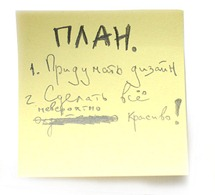 ПЛАН.
1. Придумать дизайн
2. Сделать всё
невероятно
Красиво!